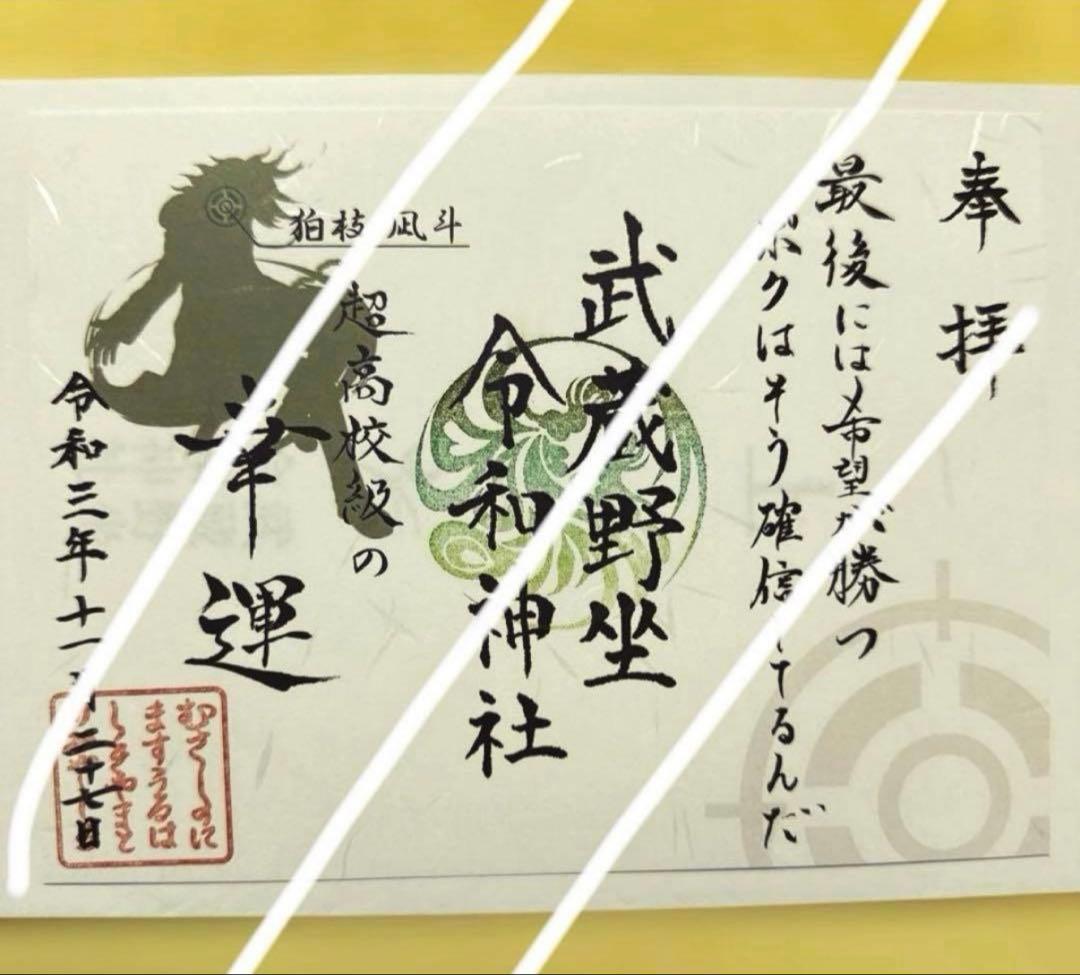 奉拝
最後には、希望が勝つ
ボクはそう確信してるんだ
武蔵野坐
令和神社
狛枝凪斗
超高校級の
幸運
令和三年十一月二十七日
むさしのに
ますうるは
しきやまと